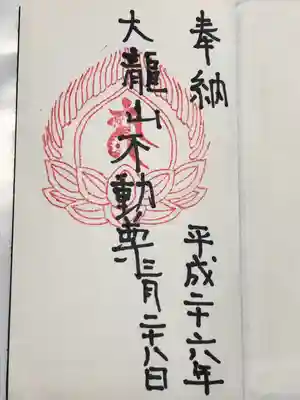 奉納
平成二十六年
大龍山不動
三月二十八日